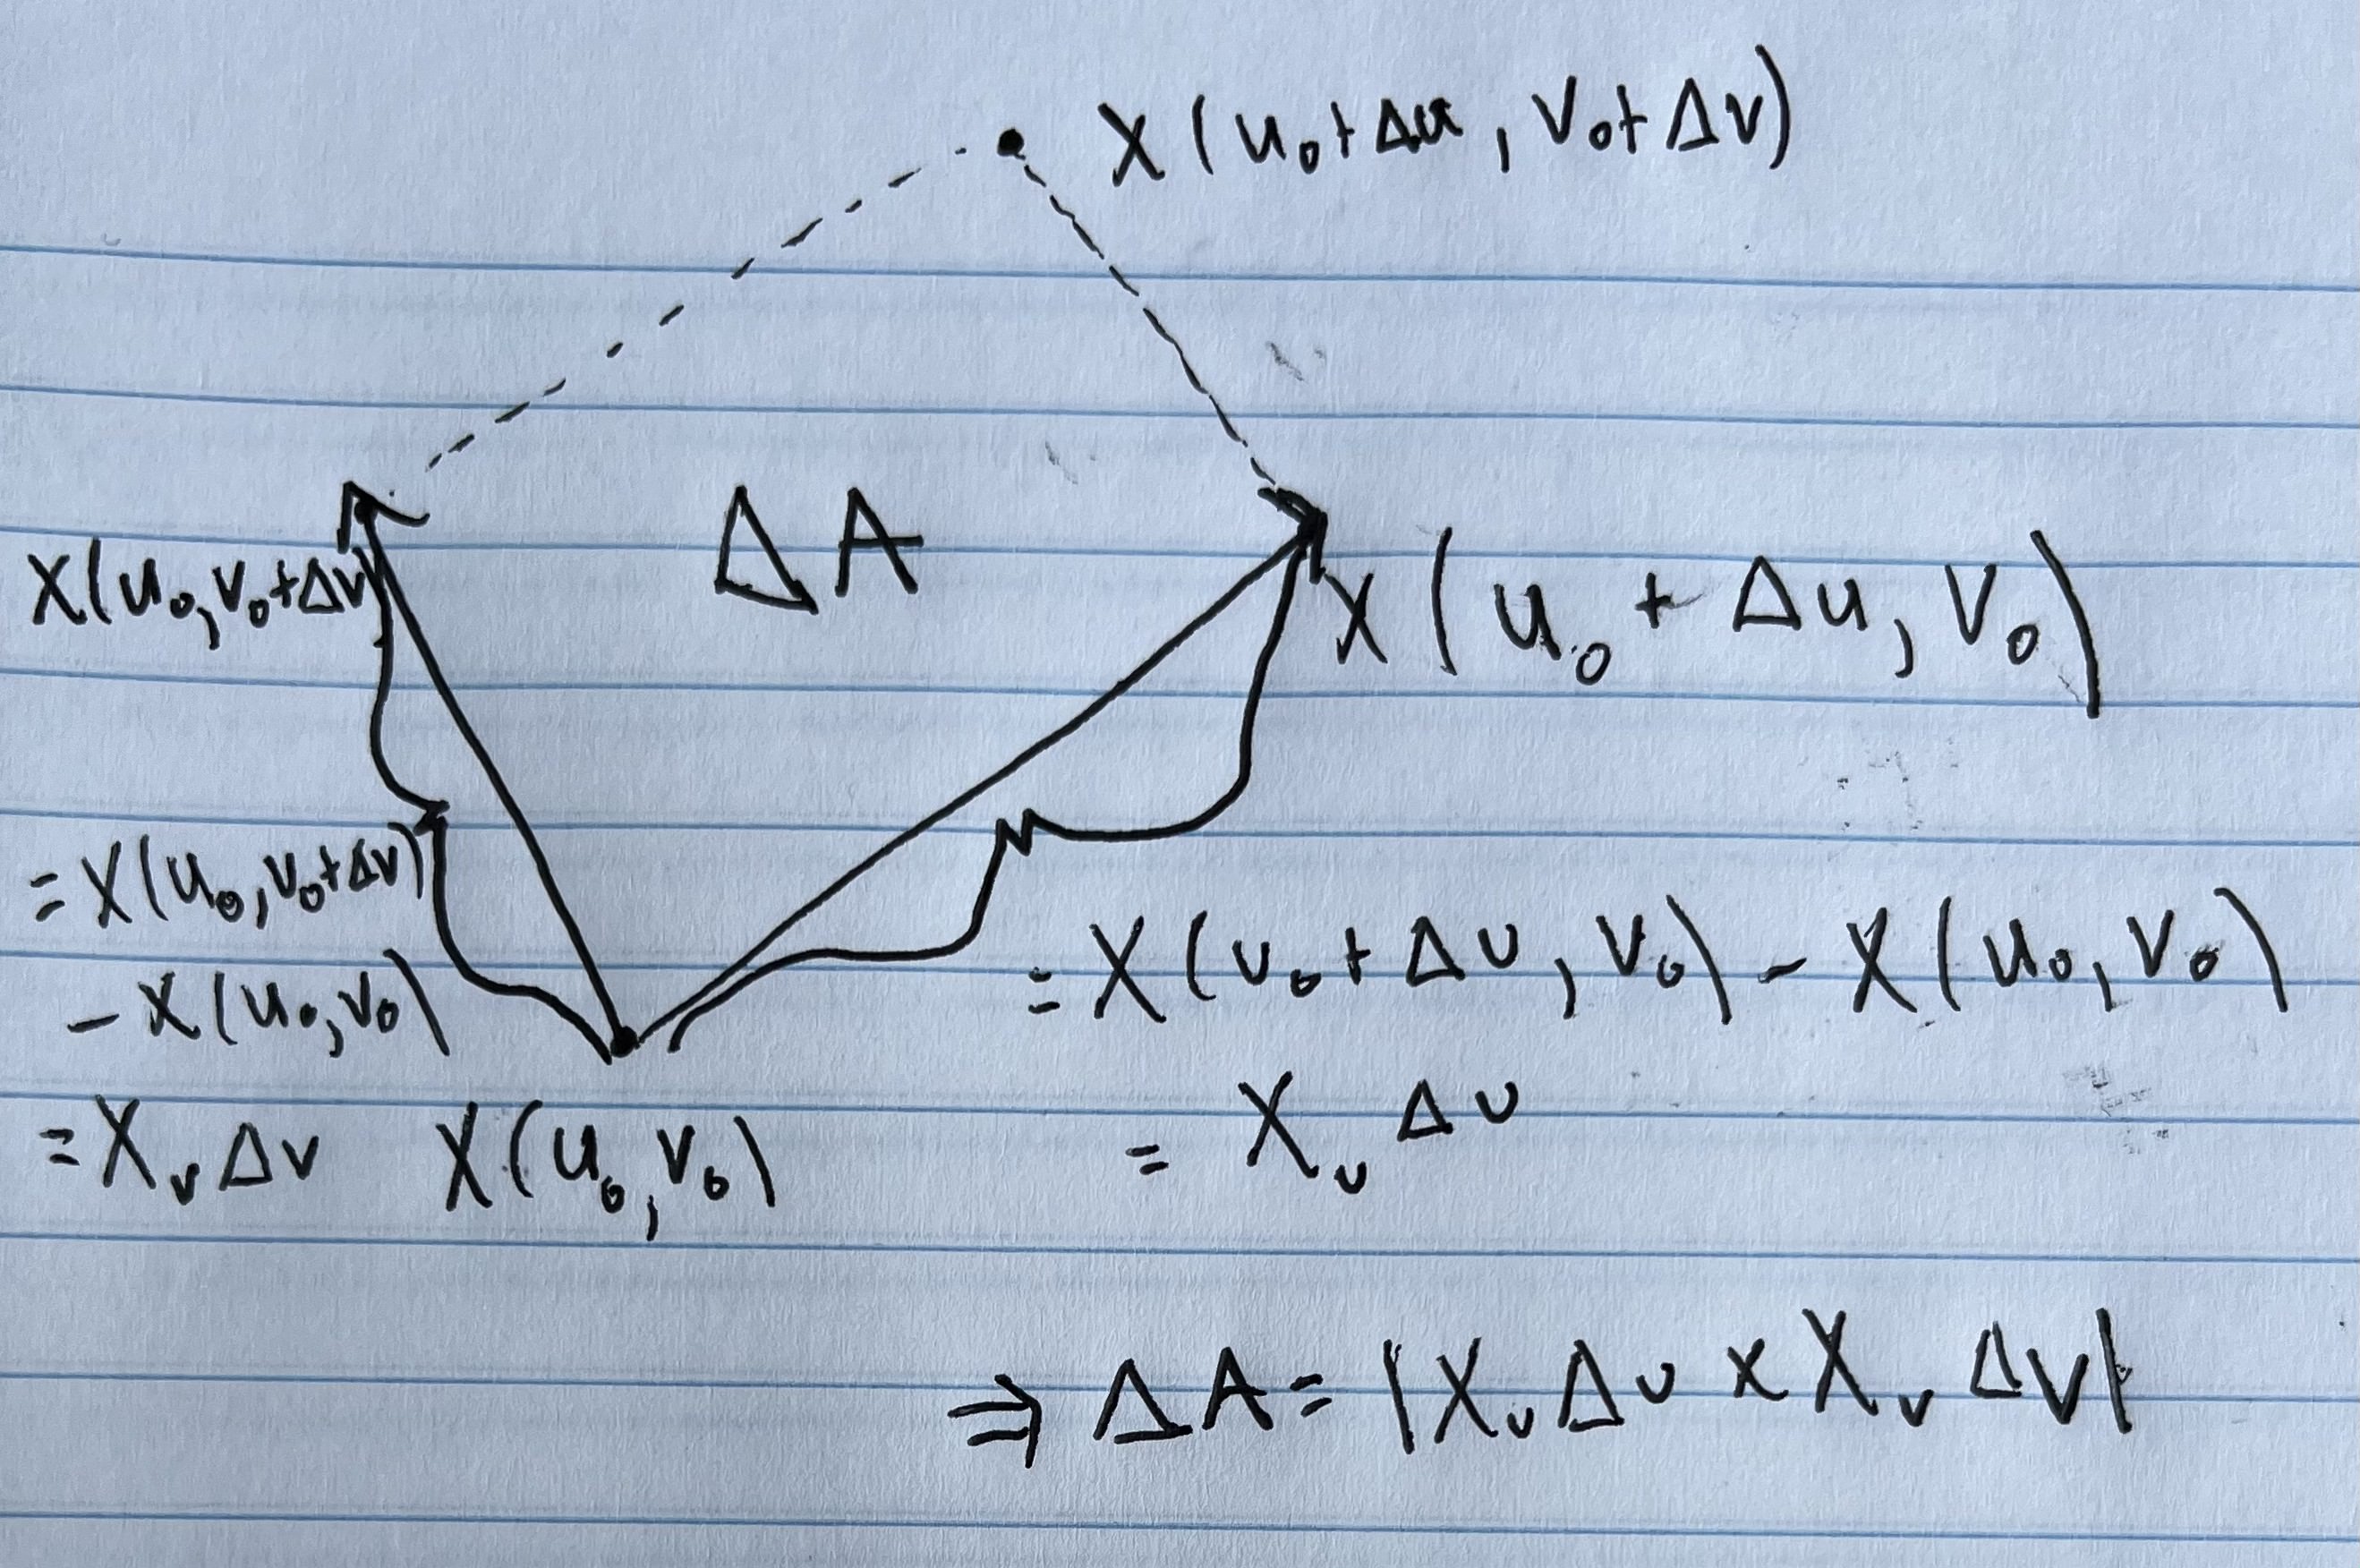 X(u₀+Δu, v₀+Δv)
ΔA
X(u₀,v₀+Δv)
X(u₀ + Δu, v₀)
=X(u₀,v₀+Δv)
- X(u₀,v₀)
= X(u₀+Δu, v₀) - X(u₀,v₀)
=Xᵥ Δv
X(u₀,v₀)
= Xᵤ Δu
⇒ ΔA= |XᵤΔu x Xᵥ Δv|